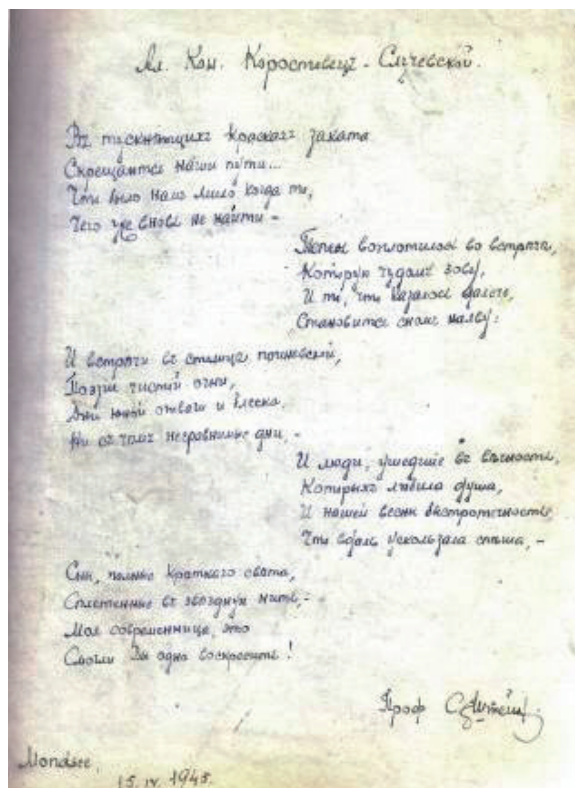 Ал. Кон. Коростовецъ-Случевской.
Въ тускнѣющихъ краскахъ заката
Скрещаются наши пути...
Что было намъ мило когда то,
Чего уже вновь не найти –
Теперь воплотилось во встрѣчѣ,
Которую чудомъ зову,
И то, что казалось далече,
Становится сномъ наяву:
И встрѣчи въ столицѣ невской,
Поэзіи чистой огни,
Дни юной отваги и блеска
Ни съ чѣмъ несравнимые дни, –
И люди, ушедшіе въ вѣчность,
Которыхъ любила душа,
И нашей весны быстротечность,
Что вдаль ускользала спѣша, –
Сны, полные краткаго свѣта,
Сплетенные въ звѣздную нить, –
Моя современница, это
Смогли Вы одна воскресить!
Проф
Mondsee,
15. IV. 1945.